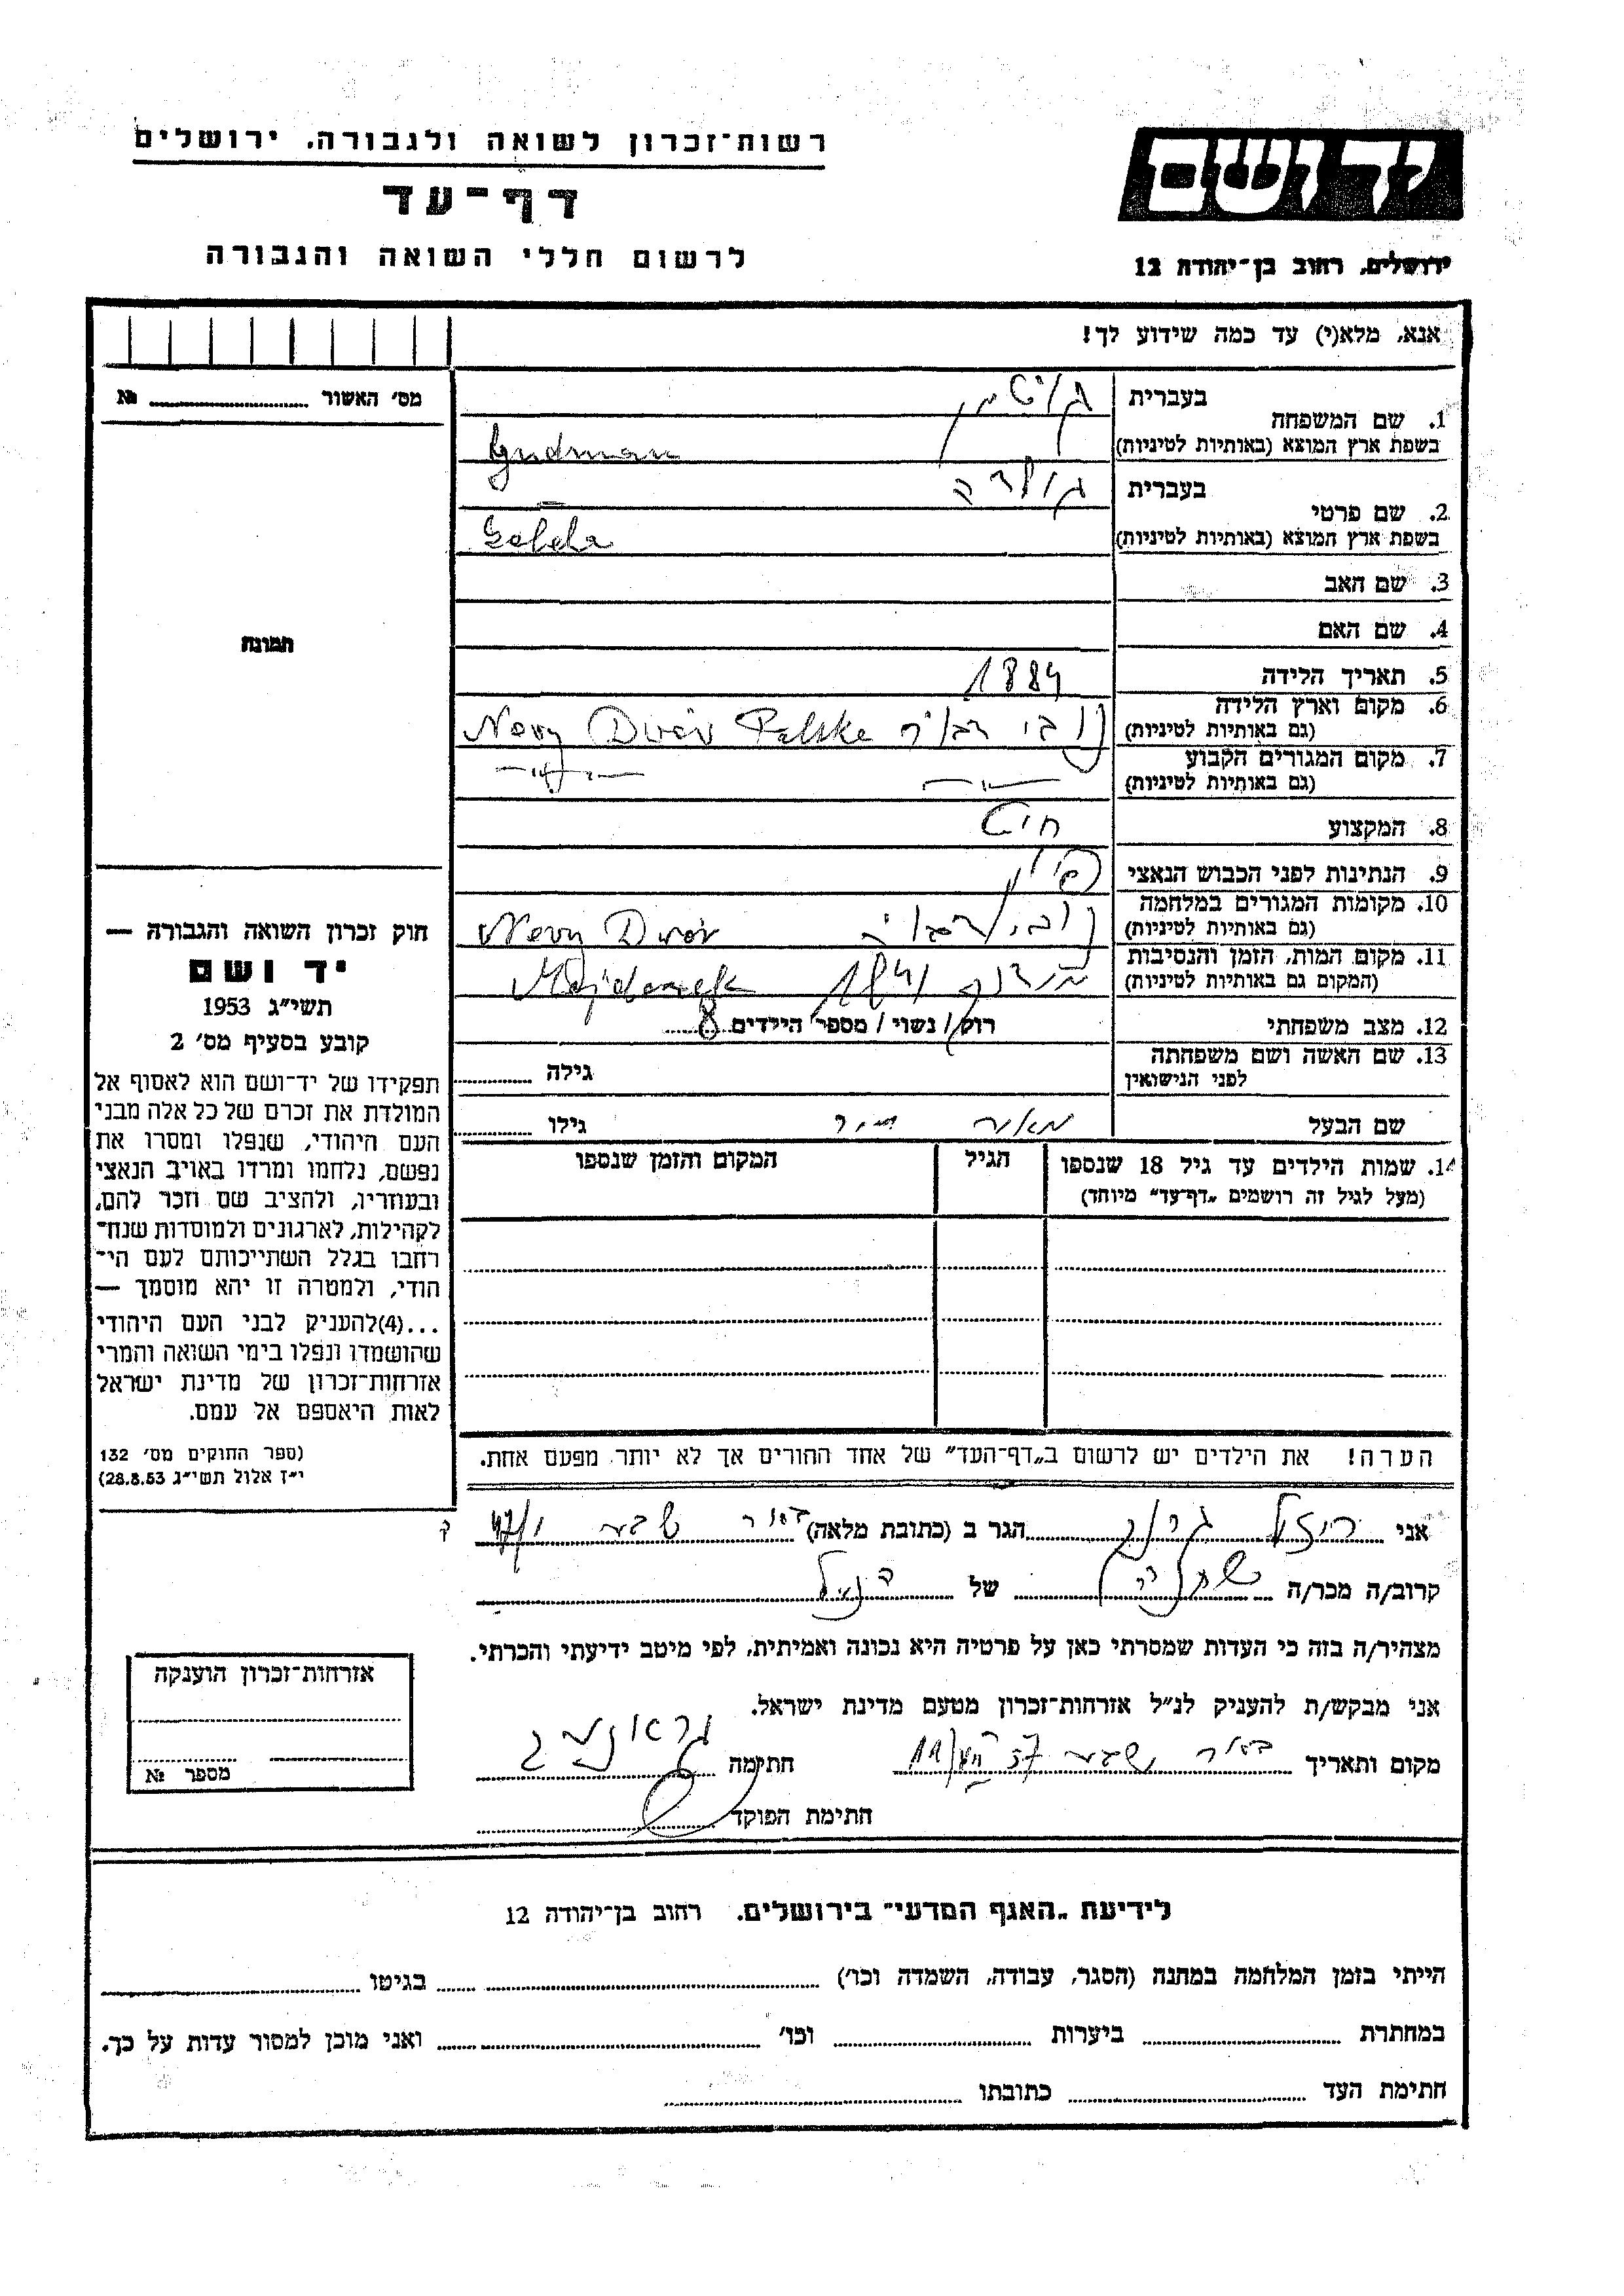 רשות־זכרון לשואה ולגבורה. ירושלים
יד ושם
דף־עד
לרשום חללי השואה והגבורה
ירושלים, רחוב בן־יהודה 12
אנא, מלא(י) עד כמה שידוע לך!
מס׳ האשור № ........
תמונה
1. שם המשפחה
בעברית
בשפת ארץ המוצא (באותיות לטיניות) Gudman
2. שם פרטי
בעברית גולדה
בשפת ארץ המוצא (באותיות לטיניות) Golda
3. שם האב
4. שם האם
5. תאריך הלידה 1884
6. מקום וארץ הלידה
(גם באותיות לטיניות) Nowy Dwór Polska
7. מקום המגורים הקבוע
(גם באותיות לטיניות) —״— —״—
8. המקצוע
9. הנתינות לפני הכבוש הנאצי
10. מקומות המגורים במלחמה
(גם באותיות לטיניות) Nowy Dwór
11. מקום המות, הזמן והנסיבות
(המקום גם באותיות לטיניות) Majdanek
12. מצב משפחתי רווק / נשוי / מספר הילדים 8
13. שם האשה ושם משפחתה
לפני הנישואין גילה ........
שם הבעל מאיר גילו ........
14. שמות הילדים עד גיל 18 שנספו הגיל המקום והזמן שנספו
(מעל לגיל זה רושמים „דף־עד״ מיוחד)
הערה! את הילדים יש לרשום ב„דף־העד״ של אחד ההורים אך לא יותר מפעם אחת.
חוק זכרון השואה והגבורה —
יד ושם
תשי״ג 1953
קובע בסעיף מס׳ 2
תפקידו של יד־ושם הוא לאסוף אל
המולדת את זכרם של כל אלה מבני
העם היהודי, שנפלו ומסרו את
נפשם, נלחמו ומרדו באויב הנאצי
ובעוזריו, ולהציב שם וזכר להם,
לקהילות, לארגונים ולמוסדות שנח־
רבו בגלל השתייכותם לעם הי־
הודי, ולמטרה זו יהא מוסמך —
...(4)להעניק לבני העם היהודי
שהושמדו ונפלו בימי השואה והמרי
אזרחות־זכרון של מדינת ישראל
לאות היאספם אל עמם.
(ספר החוקים מס׳ 132
י״ז אלול תשי״ג 28.8.53)
אני הגר ב (כתובת מלאה) באר שבע
קרוב/ה מכר/ה של
מצהיר/ה בזה כי העדות שמסרתי כאן על פרטיה היא נכונה ואמיתית, לפי מיטב ידיעתי והכרתי.
אני מבקש/ת להעניק לנ״ל אזרחות־זכרון מטעם מדינת ישראל.
מקום ותאריך באר שבע חתימה
חתימת הפוקד
אזרחות־זכרון הוענקה
מספר №
לידיעת „האגף המדעי״ בירושלים. רחוב בן־יהודה 12
הייתי בזמן המלחמה במחנה (הסגר, עבודה, השמדה וכו׳) ........ בגיטו ........
במחתרת ........ ביערות ........ וכו׳ ........ ואני מוכן למסור עדות על כך.
חתימת העד ........ כתובתו ........